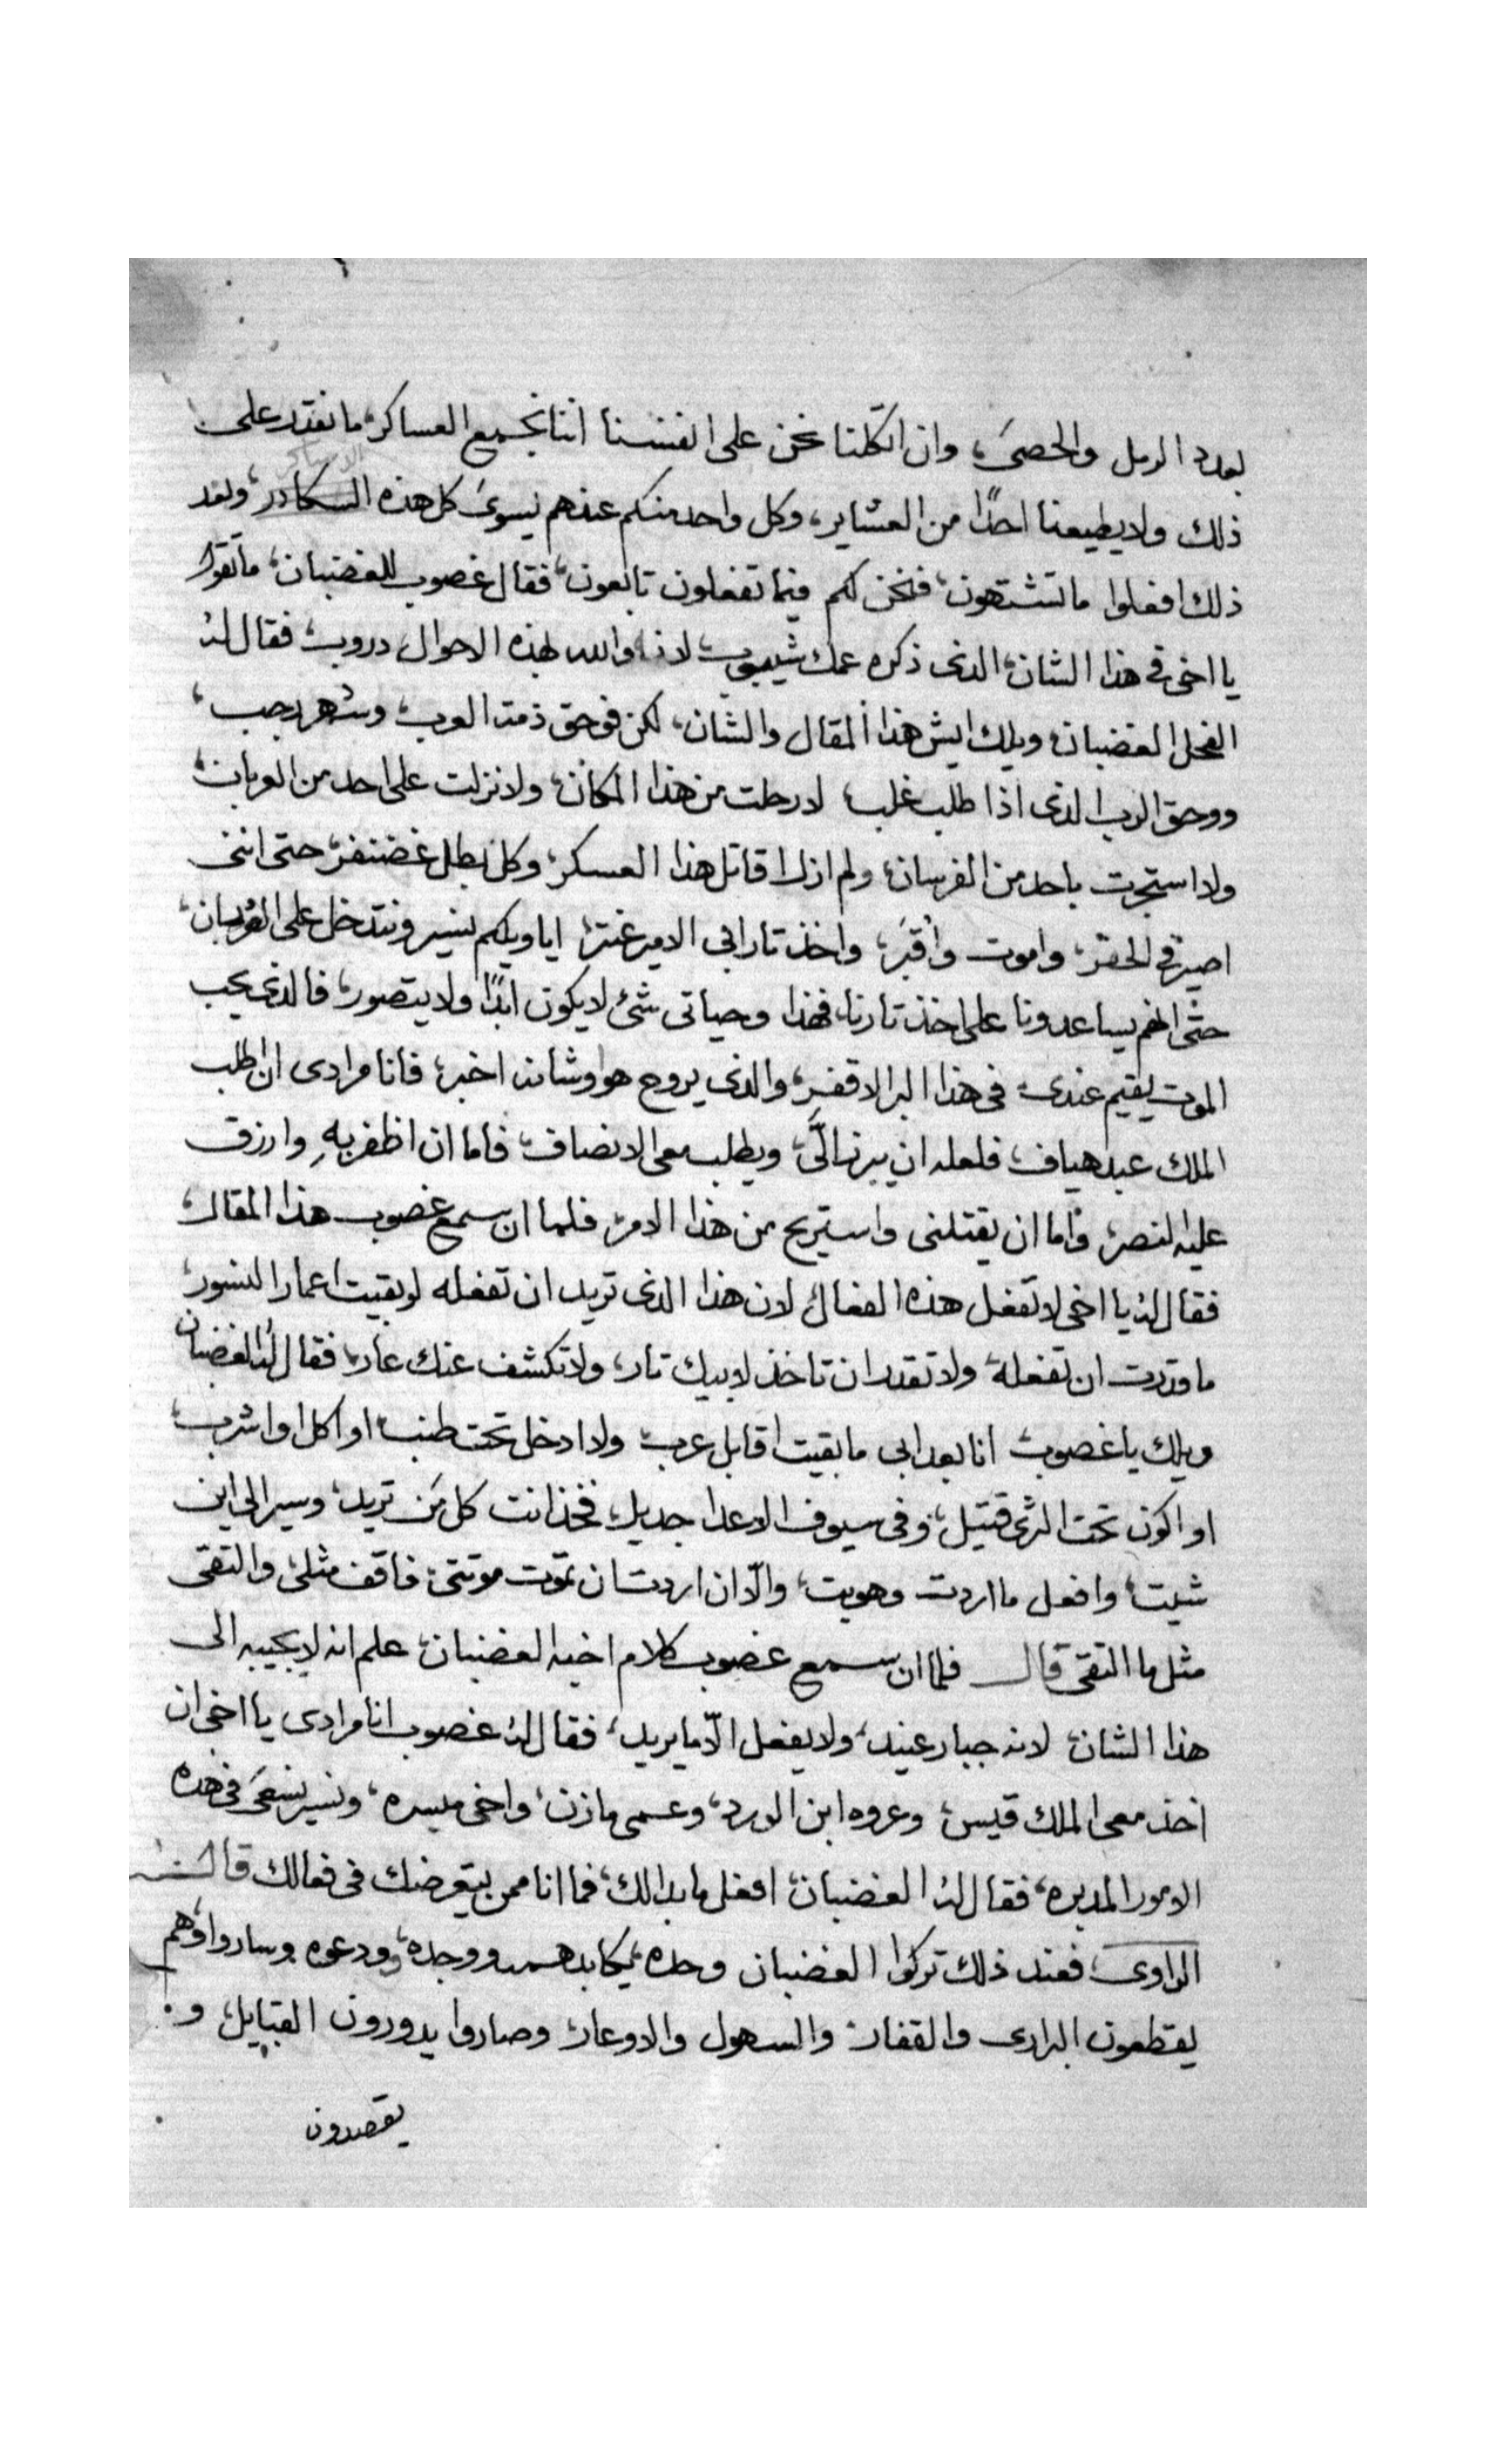 بعدد الرمل والحصىَ، وان اتكلنا نحن على انفسنا اننا نجمع العساكر، ما نقدر على
ذلك ولا يطيعنا احدًا من العشاير، وكل واحد منكم عندهم يسوىَ كل هذه وبعد
ذلك افعلوا ما تشتهون، فنحن لكم فيما تفعلون تابعون، فقال غصوب للغضبان، ما تقول
يا اخى فى هذا الشان، الذى ذكره عمك شيبوب، لانه والله بهذه الاحوال دروب، فقال لهُ
الفحل الغضبان، ويلك ايش هذا المقال والشان، لكن فوحق ذمت العرب، وشهر رجب،
ووحق الرب الذى اذا طلب غلب، لا رحلت من هذا المكان، ولا نزلت على احد من العربان،
ولا استجرت باحد من الفرسان، ولم ازل اقاتل هذا العسكر، وكل بطل غضنفر، حتى اننى
اصير فى الحفر، واموت واُقبَر، واخذ تار ابى الامير عنتر، ايا ويلكم نسير وندخل على العُربان،
حتى انهم يساعدونا على اخذ تارنا، فهذا وحياتى شئ لا يكون ابدًا ولا يتصور، فالذى يحب
الموت يقيم عندى فى هذا البر الاقفر، والذى يروح هو وشانه اخبر، فانا مرادى ان اطلب
الملك عبد هياف، فلعله ان يبرز الَّى، ويطلب معى الانصاف، فاما ان اظفر بهِ وارزق
عليه النصر، واما ان يقتلنى واستريح من هذا الامر، فلما ان سمع غصوب هذا المقال،
فقال لهُ يا اخى لا تفعل هذه الفعال، لان هذا الذى تريد ان تفعله لو بقيت اعمار النسور،
ما قدرت ان تفعلهُ ولا تقدر ان تاخذ لابيك تار، ولا تكشف عنك عار، فقال لهُ الغضبان
ويلك يا غصوب، انا بعد ابى ما بقيت اقابل عرب، ولا ادخل تحت طنب، او اكل او اشرب،
او اكون تحت الثرى قتيل، وفى سيوف الاعدا جديل، فخذ انت كل مَن تريد، وسير الى اين
شيت، وافعل ما اردت وهويت، والّا ان اردت ان تموت موتتى، فاقف مثلى، والتقى
مثل ما التقى قال فلما ان سمع غضوب كلام اخيه الغضبان، علم انه لا يجيبه الى
هذا الشان، لانه جبار عنيد، ولا يفعل الّا ما يريد، فقال لهُ غصوب انا مرادى يا اخى ان
اخذ معى الملك قيس، وعروه ابن الورد، وعمى مازن، واخى ميسره، ونسير نسعَى فى هذه
الامور المدبره، فقال لهُ الغضبان، افعل ما بدا لك، فما انا ممن يتعرضك فى فعالك قال
الراوى، فعند ذلك تركوا الغضبان وحده يكابد همه ووجده، وودعوه وساروا وهم
يقطعون البرارى والقفار، والسهول والاوعار، وصاروا يدورون القبايل، و
يقصدون